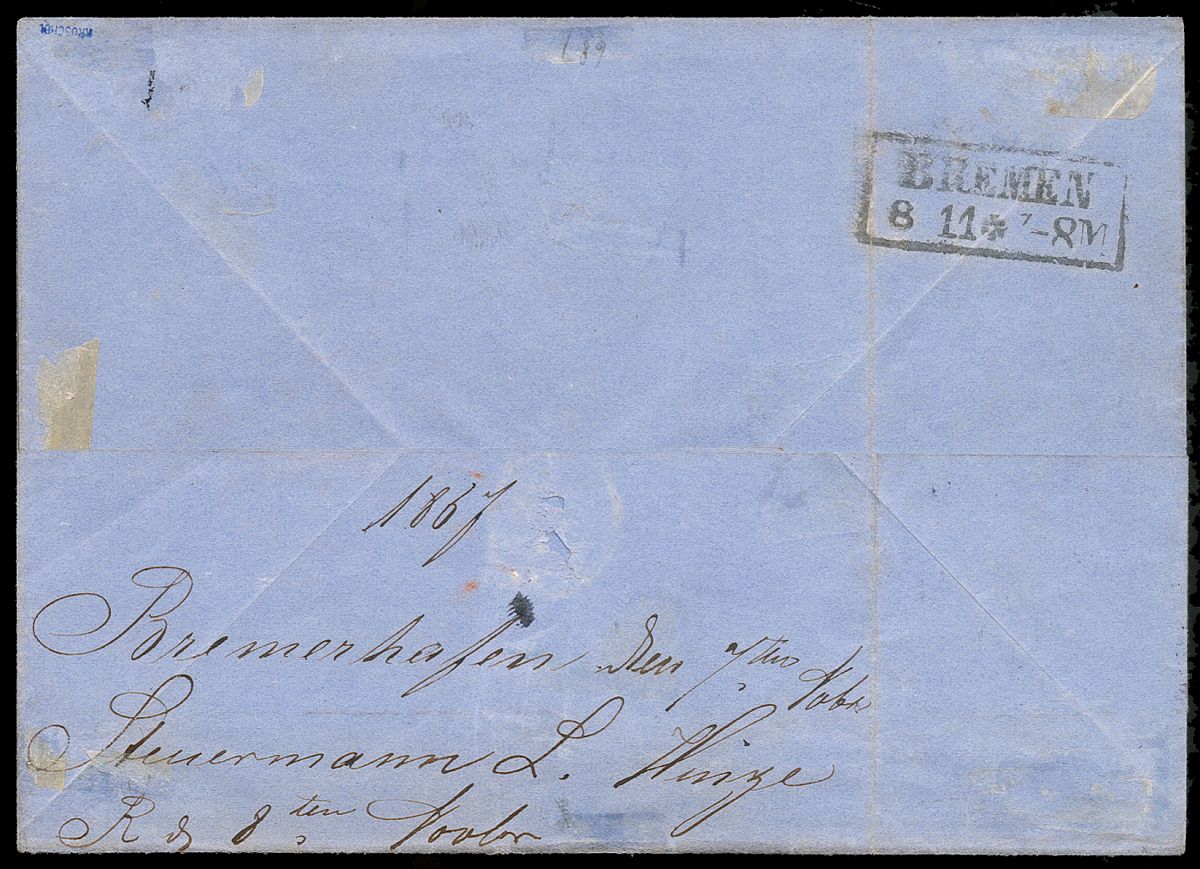 KRUSCHEL
139
BREMEN
8 11 * 7-8M
1867
Bremerhafen den 7ten Novbr
Steuermann L. Winge
R d 8ten Novbr